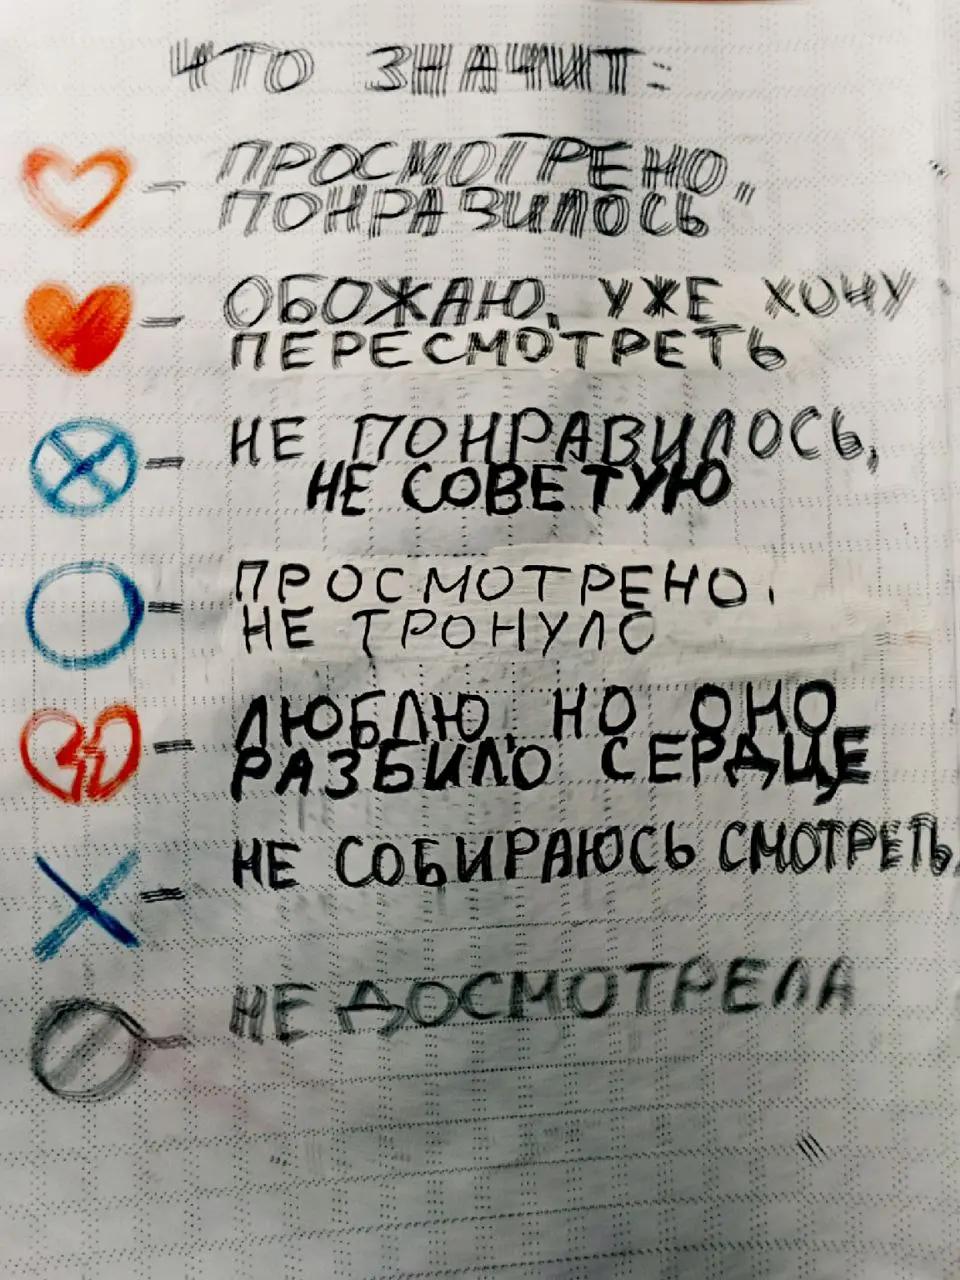 ЧТО ЗНАЧИТ:
– ПРОСМОТРЕНО,
ПОНРАВИЛОСЬ"
– ОБОЖАЮ, УЖЕ ХОЧУ
ПЕРЕСМОТРЕТЬ
– НЕ ПОНРАВИЛОСЬ,
НЕ СОВЕТУЮ
– ПРОСМОТРЕНО,
НЕ ТРОНУЛО
– ЛЮБЛЮ, НО ОНО
РАЗБИЛО СЕРДЦЕ
– НЕ СОБИРАЮСЬ СМОТРЕТЬ
– НЕ ДОСМОТРЕЛА